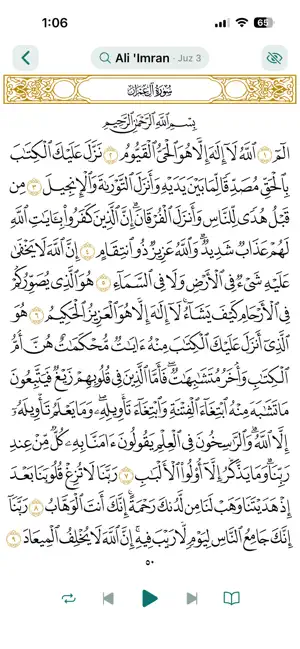 1:06 65
Ali 'Imran · Juz 3
سُورَةُ آلِ عِمْرَانَ
بِسْمِ ٱللَّهِ ٱلرَّحْمَٰنِ ٱلرَّحِيمِ
الٓمٓ ١ ٱللَّهُ لَآ إِلَٰهَ إِلَّا هُوَ ٱلْحَىُّ ٱلْقَيُّومُ ٢ نَزَّلَ عَلَيْكَ ٱلْكِتَٰبَ
بِٱلْحَقِّ مُصَدِّقًا لِّمَا بَيْنَ يَدَيْهِ وَأَنزَلَ ٱلتَّوْرَىٰةَ وَٱلْإِنجِيلَ ٣ مِن
قَبْلُ هُدًى لِّلنَّاسِ وَأَنزَلَ ٱلْفُرْقَانَ ۗ إِنَّ ٱلَّذِينَ كَفَرُوا۟ بِـَٔايَٰتِ ٱللَّهِ
لَهُمْ عَذَابٌ شَدِيدٌ ۗ وَٱللَّهُ عَزِيزٌ ذُو ٱنتِقَامٍ ٤ إِنَّ ٱللَّهَ لَا يَخْفَىٰ
عَلَيْهِ شَىْءٌ فِى ٱلْأَرْضِ وَلَا فِى ٱلسَّمَآءِ ٥ هُوَ ٱلَّذِى يُصَوِّرُكُمْ
فِى ٱلْأَرْحَامِ كَيْفَ يَشَآءُ ۚ لَآ إِلَٰهَ إِلَّا هُوَ ٱلْعَزِيزُ ٱلْحَكِيمُ ٦ هُوَ
ٱلَّذِىٓ أَنزَلَ عَلَيْكَ ٱلْكِتَٰبَ مِنْهُ ءَايَٰتٌ مُّحْكَمَٰتٌ هُنَّ أُمُّ
ٱلْكِتَٰبِ وَأُخَرُ مُتَشَٰبِهَٰتٌ ۖ فَأَمَّا ٱلَّذِينَ فِى قُلُوبِهِمْ زَيْغٌ فَيَتَّبِعُونَ
مَا تَشَٰبَهَ مِنْهُ ٱبْتِغَآءَ ٱلْفِتْنَةِ وَٱبْتِغَآءَ تَأْوِيلِهِۦ ۗ وَمَا يَعْلَمُ تَأْوِيلَهُۥٓ
إِلَّا ٱللَّهُ ۗ وَٱلرَّٰسِخُونَ فِى ٱلْعِلْمِ يَقُولُونَ ءَامَنَّا بِهِۦ كُلٌّ مِّنْ عِندِ
رَبِّنَا ۗ وَمَا يَذَّكَّرُ إِلَّآ أُو۟لُوا۟ ٱلْأَلْبَٰبِ ٧ رَبَّنَا لَا تُزِغْ قُلُوبَنَا بَعْدَ
إِذْ هَدَيْتَنَا وَهَبْ لَنَا مِن لَّدُنكَ رَحْمَةً ۚ إِنَّكَ أَنتَ ٱلْوَهَّابُ ٨ رَبَّنَآ
إِنَّكَ جَامِعُ ٱلنَّاسِ لِيَوْمٍ لَّا رَيْبَ فِيهِ ۚ إِنَّ ٱللَّهَ لَا يُخْلِفُ ٱلْمِيعَادَ ٩
٥٠